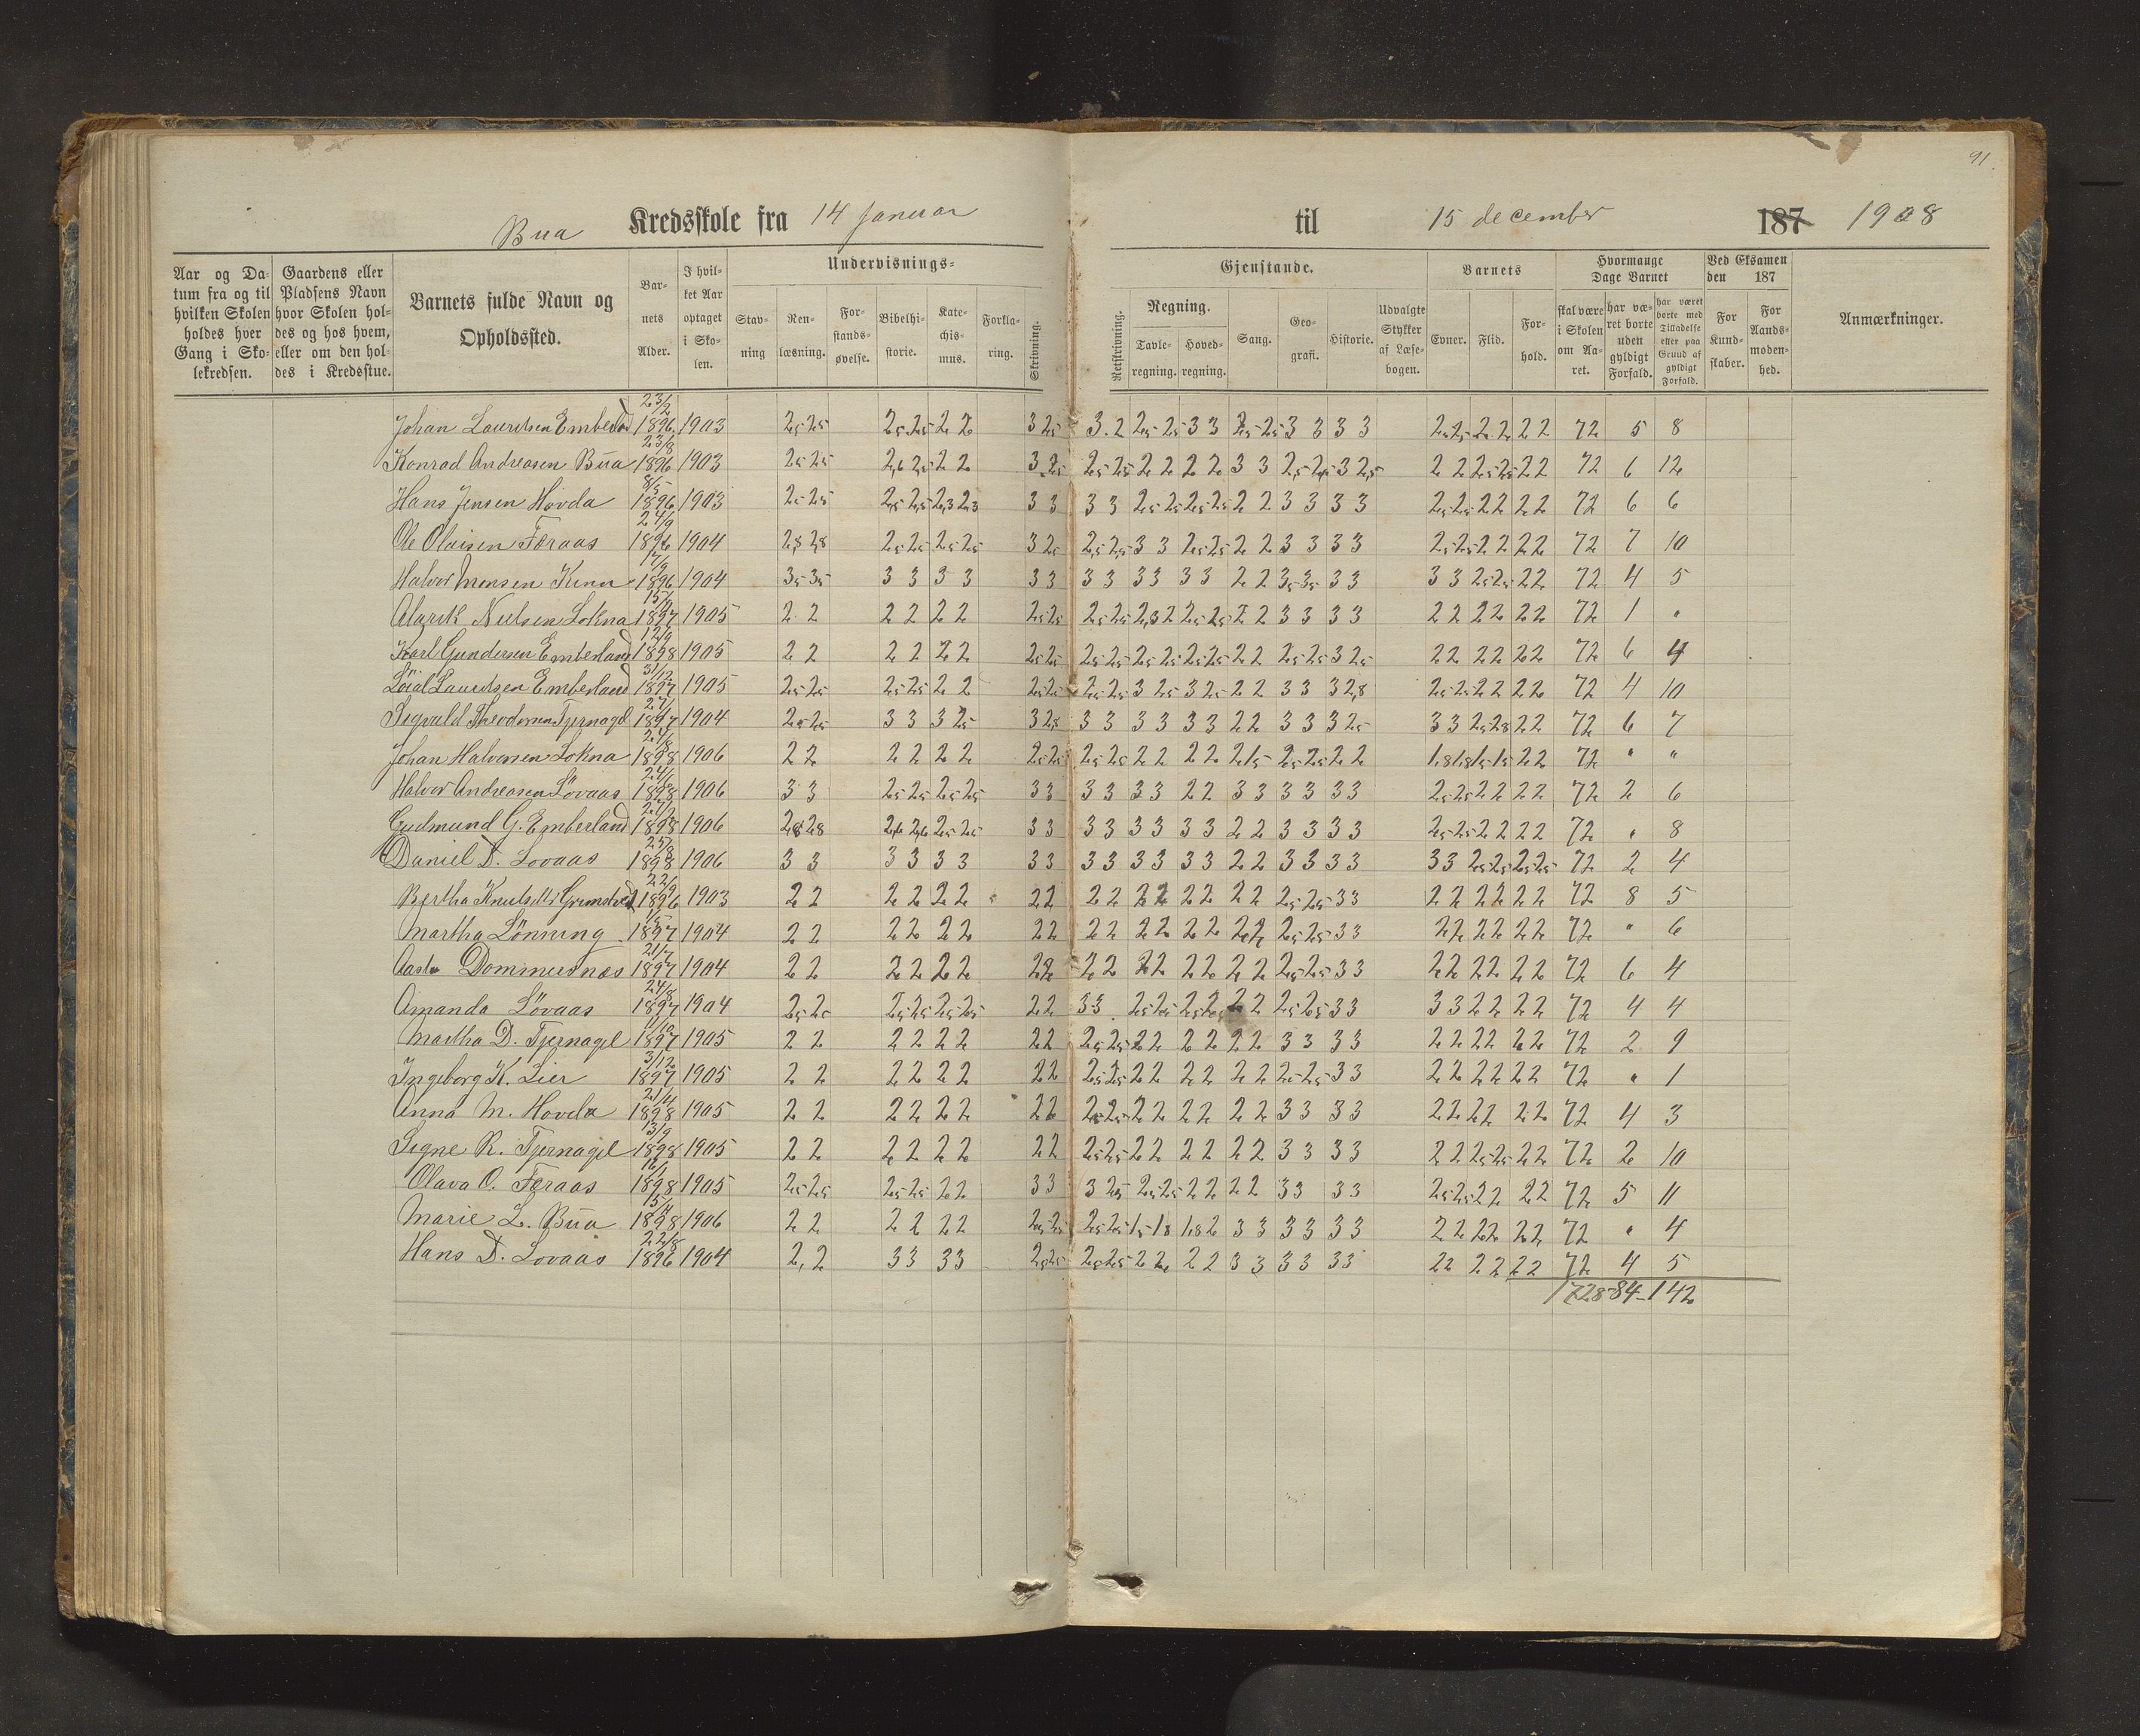 91
Bua Kredsskole fra 14 Januar til 15 december 187 1908
Aar og Datum fra og til hvilken Skolen holdes hver Gang i Skolekredsen.
Gaardens eller Pladsens Navn hvor Skolen holdes og hos hvem, eller om den holdes i Kredsstue.
Barnets fulde Navn og Opholdssted.
Barnets Alder.
I hvilket Aar optaget i Skolen.
Undervisnings-
Stavning
Renlæsning.
Forstandsøvelse.
Bibelhistorie.
Katechismus.
Forklaring.
Skrivning.
Gjenstande.
Retskrivning.
Regning.
Tavleregning.
Hovedregning.
Sang.
Geografi.
Historie.
Udvalgte Stykker af Læsebogen.
Barnets
Evner.
Flid.
Forhold.
Hvormange Dage Barnet
skal være i Skolen om Aaret.
har været borte uden gyldigt Forfald.
har været borte med Tilladelse eller paa Grund af gyldigt Forfald.
Ved Eksamen den 187
For Kundskaber.
For Aandsmodenhed.
Anmærkninger.
Johan Lauritsen Emberland 23/2 1896 1903 2,5 2,5 2,5 2,5 2 2 3 2,5 3. 2 2,5 2,5 3 3 2,5 2,5 3 3 3 3 2,5 2,5 2 2 2 2 72 5 8
Konrad Andreasen Bua 23/8 1896 1903 2,5 2,5 2,6 2,5 2 2 3 2,5 2,5 2,5 2 2 2 2 3 3 2,5 2,5 3 2,5 2 2 2,5 2,5 2 2 72 6 12
Hans Jensen Hovda 8/5 1896 1903 2,5 2,5 2,5 2,5 2,3 2,3 3 3 3 3 2,5 2,5 2,5 2,5 2 2 3 3 3 3 2,5 2,5 2 2 2 2 72 6 6
Ole Olaisen Færaas 24/9 1896 1904 2,8 2,8 2,5 2,5 2,5 2,5 3 2,5 2,5 2,5 3 3 2,5 2,5 2 2 3 3 3 3 2,5 2,5 2 2 2 2 72 7 10
Halvor Monsen 1896 1904 3,5 3,5 3 3 3 3 3 3 3 3 3 3 3 3 2 2 3,5 3,5 3 3 3 3 2,5 2,5 2 2 72 4 5
Alarik Nielsen Lokna 1897 1905 2 2 2 2 2 2 2,5 2,5 2,5 2,5 2,8 2 2,5 2,5 2 2 3 3 3 3 2 2 2 2 2 2 72 1 "
Karl Gundersen Emberland 12/9 1898 1905 2 2 2 2 2 2 2,5 2,5 2,5 2,5 2,5 2,5 2,5 2,5 2 2 2,5 2,5 3 2,5 2 2 2 2 2 2 72 6 4
Lauritsen Emberland 31/12 1897 1905 2,5 2,5 2,5 2,5 2 2 2,5 2,5 2,5 2,5 3 2,5 3 2,5 2 2 3 3 3 2,8 2,5 2,5 2 2 2 2 72 4 10
Sigvald Theodorsen Tjernagel 1897 1904 2,5 2,5 3 3 3 2,5 3 2,8 3 3 3 3 3 3 2 2 3 3 3 2,5 3 3 2,5 2,8 2 2 72 6 7
Johan Halvorsen Lokna 1898 1906 2 2 2 2 2 2 2,5 2,5 2,5 2,5 2 2 2 2 2 1,5 2,5 2,5 2 2 1,8 1,8 1,5 1,5 2 2 72 " "
Halvor Andreasen Lövaas 1898 1906 3 3 2,5 2,5 2,5 2,5 3 3 3 3 3 3 2 2 3 3 3 3 3 3 2,5 2,5 2 2 2 2 72 2 6
Gudmund G. Emberland 1898 1906 2,8 2,8 2,6 2,6 2,5 2,5 3 3 3 3 3 3 3 3 2 2 3 3 3 3 2,5 2,5 2 2 2 2 72 " 8
Daniel D. Lovaas 1898 1906 3 3 3 3 3 3 3 3 3 3 3 3 3 3 2 2 3 3 3 3 3 3 2,5 2,5 2,5 2,5 72 2 4
Bertha 1896 1903 2 2 2 2 2 2 2 2 2 2 2 2 2 2 2 2 2,5 2,5 3 3 2 2 2 2 2 2 72 8 5
Martha Lönning 1/5 1897 1904 2 2 2 2 2 2 2 2 2 2 2 2 2 2 2 2 2,5 2,5 3 3 2 2 2 2 2 2 72 " 6
Aasta Dommersnæs 21/7 1897 1904 2 2 2 2 2 2 2 2 2 2 2 2 2 2 2 2 2,5 2,5 3 3 2 2 2 2 2 2 72 6 4
Amanda Lövaas 24/8 1897 1904 2,5 2,5 2,5 2,5 2,5 2,5 2 2 3 3 2,5 2,5 2,5 2,5 2 2 2,5 2,5 3 3 3 3 2 2 2 2 72 4 4
Martha D. Tjernagel 1/12 1897 1905 2 2 2 2 2 2 2 2 2,5 2,5 2 2 2 2 2 2 3 3 3 3 2 2 2 2 2 2 72 2 9
Ingeborg K. Lier 3/12 1897 1905 2 2 2 2 2 2 2 2 2,5 2,5 2 2 2 2 2 2 2,5 2,5 3 3 2 2 2 2 2 2 72 " 1
Anna M. Hovda 21/4 1898 1905 2 2 2 2 2 2 2 2 2,5 2,5 2 2 2 2 2 2 3 3 3 3 2 2 2 2 2 2 72 4 3
Signe R. Tjernagel 13/9 1898 1905 2 2 2 2 2 2 2 2 2,5 2,5 2 2 2 2 2 2 3 3 3 3 2 2 2,5 2,5 2 2 72 2 10
Olava O. Færaas 1898 1905 2,5 2,5 2,5 2,5 2 2 3 3 3 2,5 2,5 2,5 2 2 2 2 3 3 3 3 2,5 2,5 2 2 2 2 72 5 11
Marie L. Bua 1898 1906 2 2 2 2 2 2 2,5 2,5 2,5 2,5 1,5 1,8 1,8 2 3 3 3 3 3 3 2 2 2 2 2 2 72 " 4
Hans D. Lovaas 22/8 1896 1904 2,2 3 3 3 3 2,5 2,5 2,5 2,5 2 2 2 2 3 3 3 3 3 3 2 2 2 2 2 2 72 4 5
1728-84-142